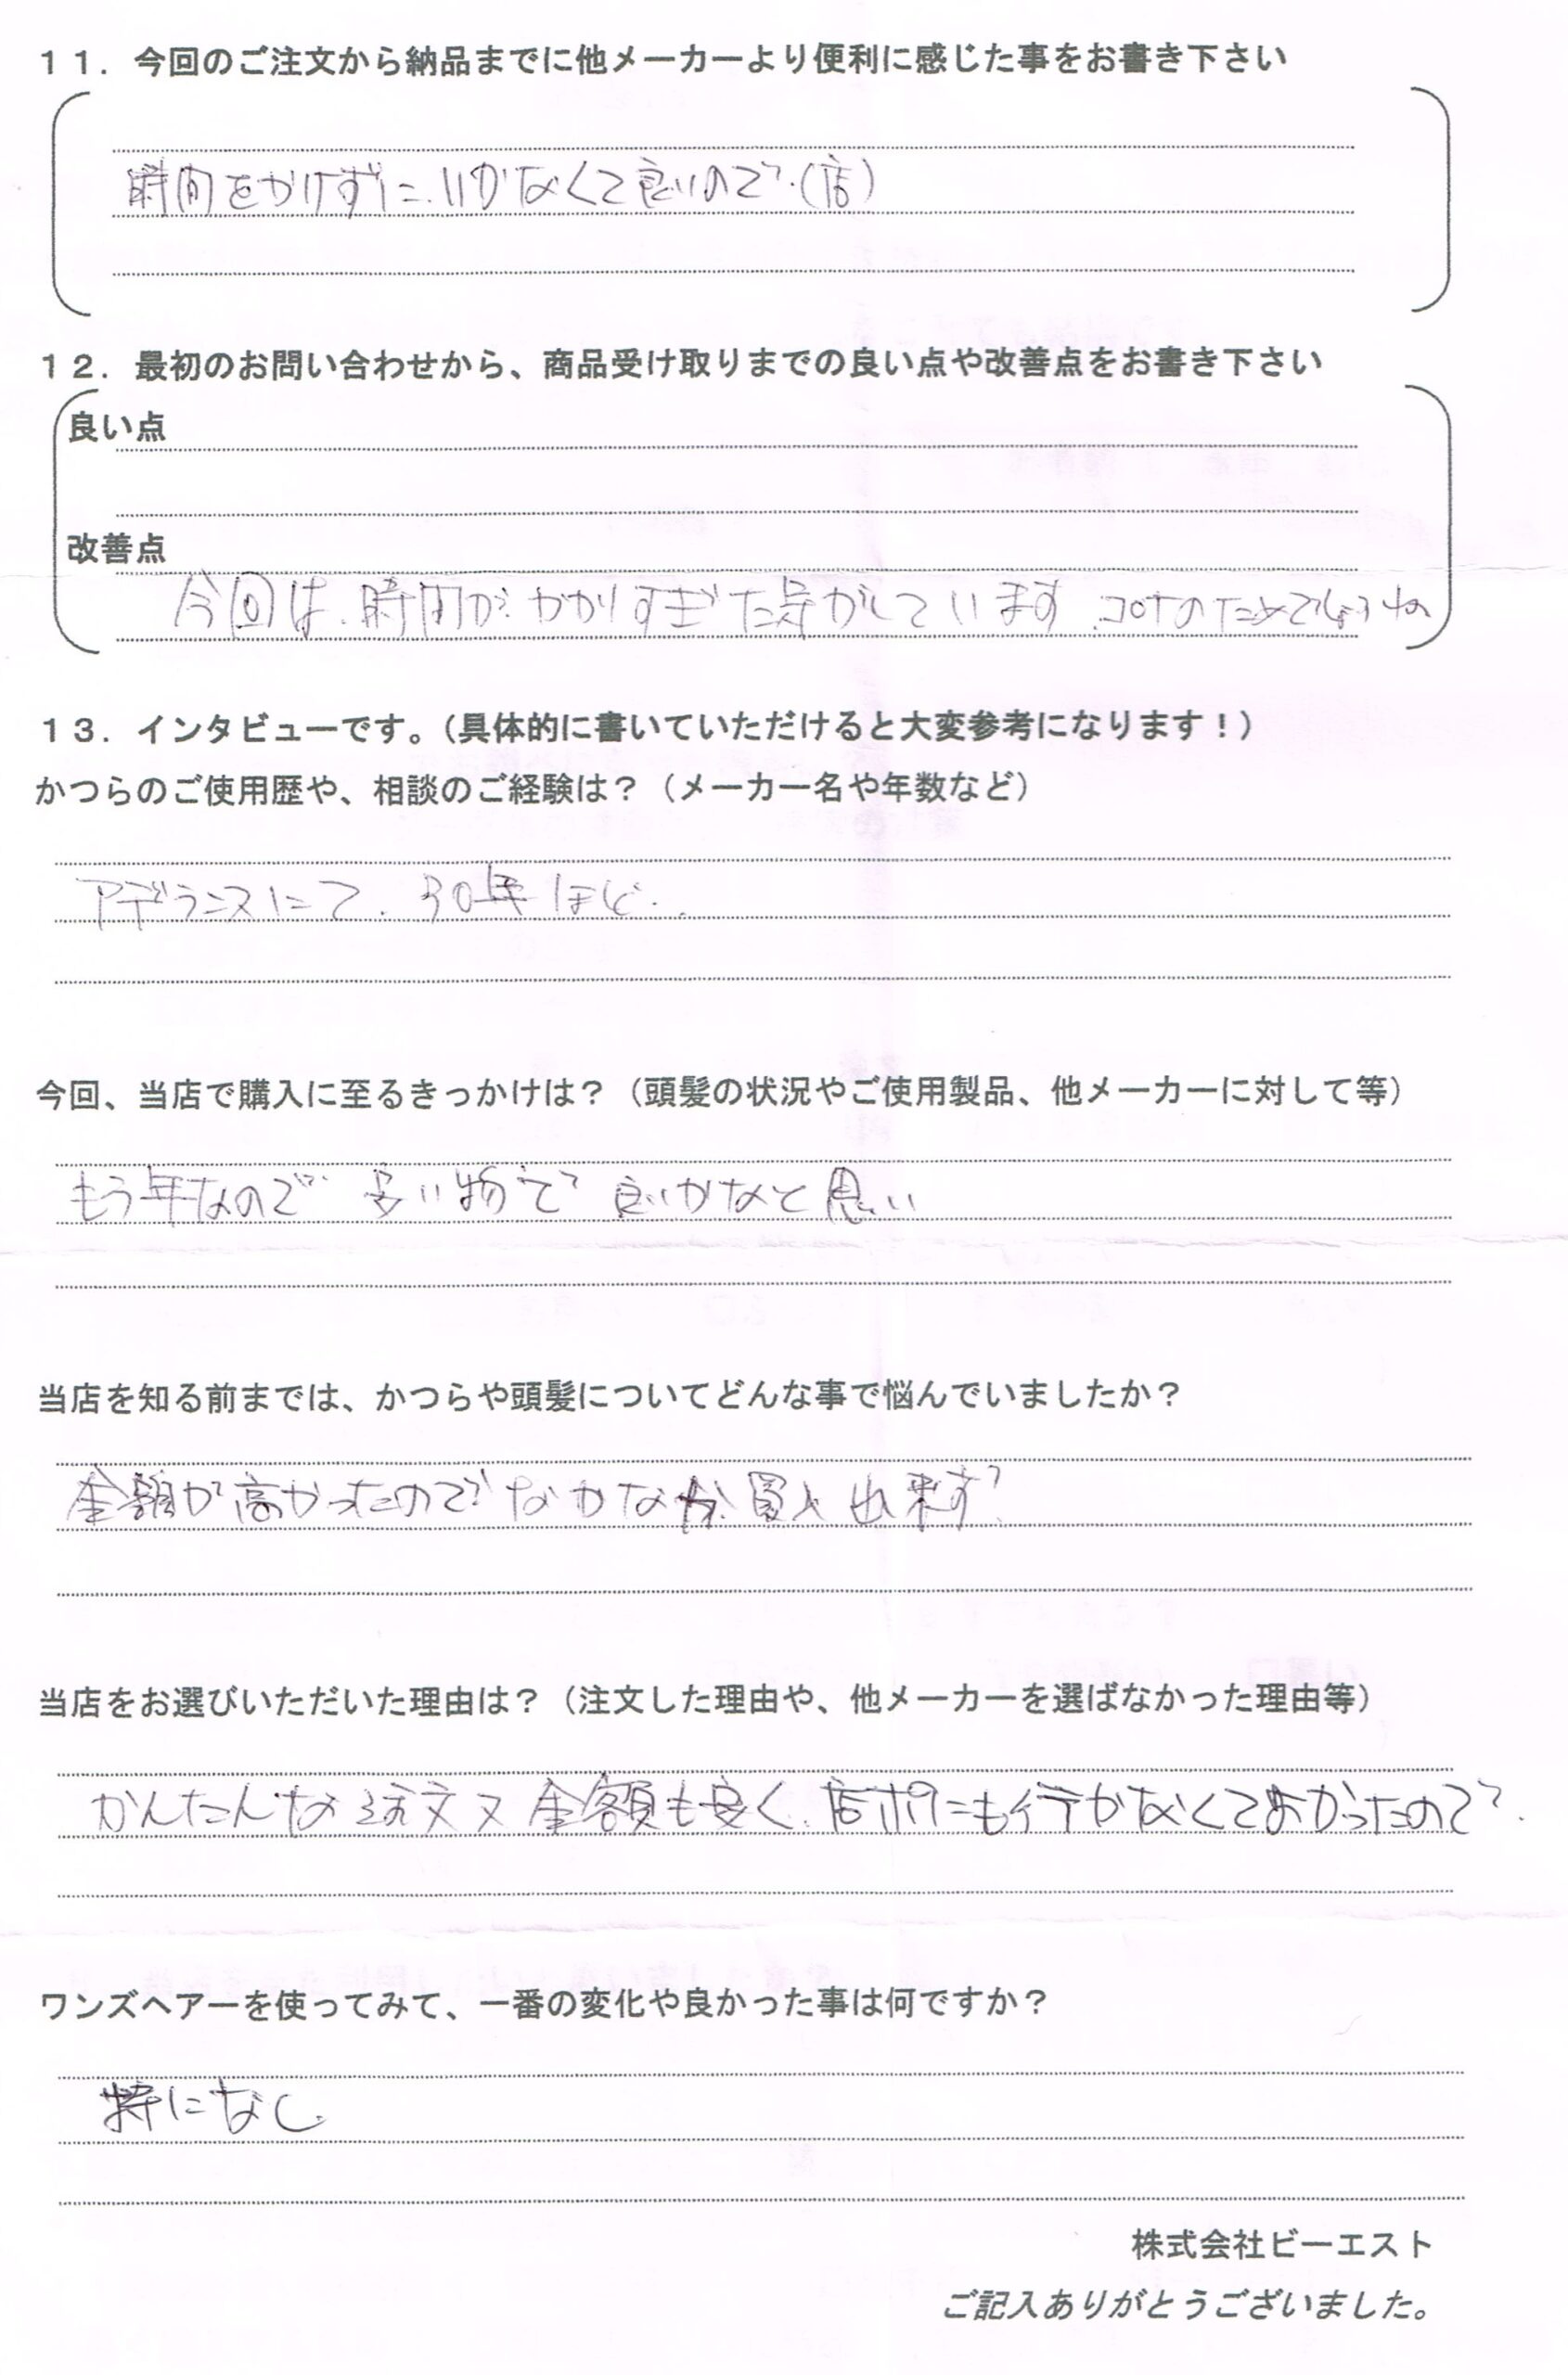 １１．今回のご注文から納品までに他メーカーより便利に感じた事をお書き下さい
時間をかけずに、いかなくて良いので、（店）
１２．最初のお問い合わせから、商品受け取りまでの良い点や改善点をお書き下さい
良い点
改善点
今回は、時間が、かかりすぎた気がしています、コロナのためでしょうね
１３．インタビューです。（具体的に書いていただけると大変参考になります！）
かつらのご使用歴や、相談のご経験は？（メーカー名や年数など）
アデランスにて、30年ほど、
今回、当店で購入に至るきっかけは？（頭髪の状況やご使用製品、他メーカーに対して等）
もう年なので、安い物で良いかなと思い
当店を知る前までは、かつらや頭髪についてどんな事で悩んでいましたか？
金額が高かったのでなかなか、買入出来ず
当店をお選びいただいた理由は？（注文した理由や、他メーカーを選ばなかった理由等）
かんたんな注文又金額も良く、店ポにも行かなくてよかったので、
ワンズヘアーを使ってみて、一番の変化や良かった事は何ですか？
特になし
株式会社ビーエスト
ご記入ありがとうございました。